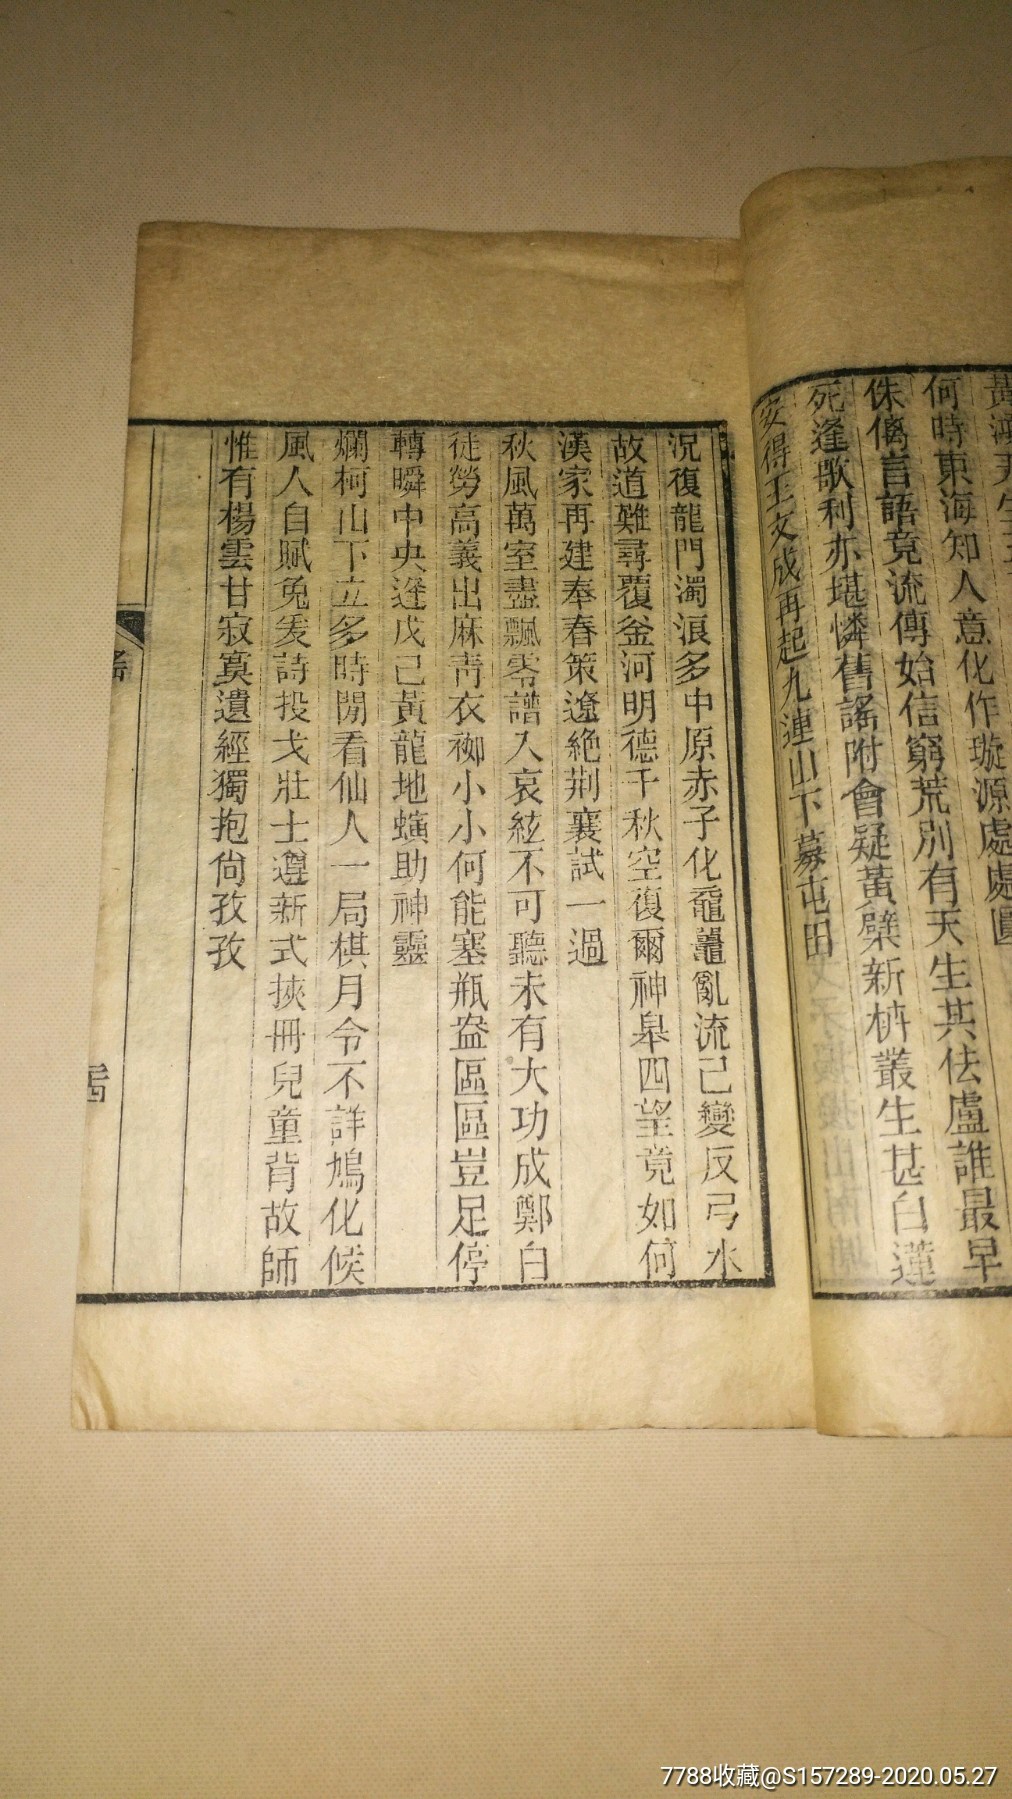 何時東海知人意化作璇源處處圓
侏㒧言語竟流傳始信窮荒別有天生其佉盧誰最早
死逢歌利亦堪憐舊謠附會疑黃檗新枿叢生甚白蓮
安得王文成再起九連山下募屯田
況復龍門濁浪多中原赤子化黿鼉亂流已變反弓水
故道難尋覆釜河明德千秋空復爾神皋四望竟如何
漢家再建奉春策遼絶荆襄試一過
秋風萬室盡飄零譜入哀絃不可聽未有大功成鄭白
徒勞高義出麻靑衣袽小小何能塞瓶盎區區豈足停
轉瞬中央逢戊己黃龍地螾助神靈
爛柯山下立多時閒看仙人一局棋月令不詳鳩化候
風人自賦兔爰詩投戈壯士遵新式挾冊兒童背故師
惟有楊雲甘寂寞遺經獨抱尙孜孜
7788收藏@S157289-2020.05.27